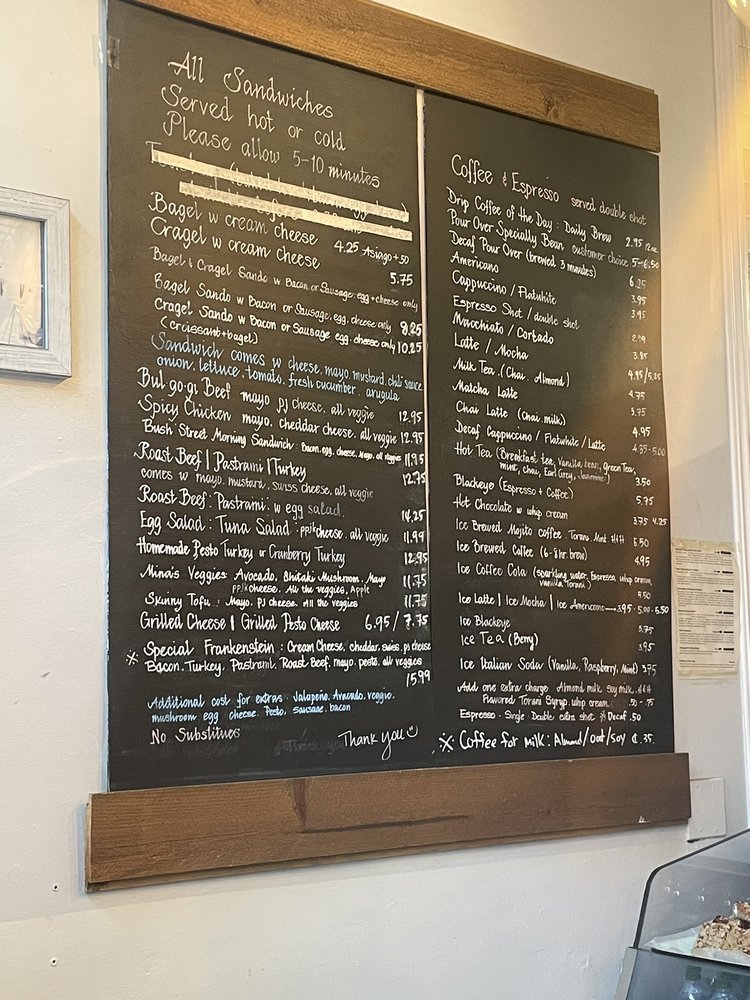 All Sandwiches
Served hot or cold
Please allow 5-10 minutes
Bagel w cream cheese 4.25 Asiago +50
Cragel w cream cheese 5.75
Bagel & Cragel Sando w Bacon or Sausage, egg + cheese only
Bagel Sando w Bacon or Sausage, egg, cheese only 8.25
Cragel Sando w Bacon or Sausage egg cheese only 10.25
(croissant+bagel)
Sandwich comes w cheese, mayo, mustard, chili sauce
onion, lettuce, tomato, fresh cucumber, arugula
Bul-go-gi Beef mayo pj cheese, all veggie 12.95
Spicy Chicken mayo, cheddar cheese, all veggie 12.95
Bush Street Morning Sandwich: Bacon, egg, cheese, Mayo, all veggies 11.95
Roast Beef | Pastrami | Turkey 12.75
comes w mayo, mustard, swiss cheese, all veggie
Roast Beef: Pastrami: w egg salad. 14.25
Egg Salad: Tuna Salad: ppjk cheese, all veggie 11.99
Homemade Pesto Turkey or Cranberry Turkey 12.95
Mina's Veggies: Avocado, Shitaki Mushroom, Mayo 11.75
ppjk cheese, All the veggies, Apple
Skinny Tofu: Mayo, PJ cheese, All the veggies 11.75
Grilled Cheese | Grilled Pesto Cheese 6.95/7.75
※ Special Frankenstein: Cream Cheese, cheddar, swiss, pj cheese
Bacon, Turkey, Pastrami, Roast Beef, mayo, pesto, all veggies
15.99
Additional cost for extras: Jalapeno, Avocado, veggie,
mushroom egg cheese, Pesto, sausage, bacon
No Substitues
Thank you
Coffee & Espresso served double shot
Drip Coffee of the Day: Daily Brew 2.95 12oz
Pour Over Specialty Bean customer choice 5-6.50
Decaf Pour Over (brewed 3 minutes) 6.25
Americano 3.95
Cappuccino / Flatwhite 3.95
Espresso Shot / double shot
Macchiato / Cortado 3.85
Latte / Mocha 4.95/5.25
Milk Tea (Chai, Almond) 4.75
Matcha Latte 5.75
Chai Latte (Chai, milk) 4.95
Decaf Cappuccino / Flatwhite / Latte 4.35-5.00
Hot Tea (Breakfast tea, Vanilla bean, green Tea,
mint, chai, Earl Grey, Jasmine) 3.50
Blackeye (Espresso + Coffee) 5.75
Hot Chocolate w whip cream 3.75 4.25
Ice Brewed Mojito coffee Torani Mint 5.50
Ice Brewed Coffee (6-8 hr. brew) 4.95
Ice Coffee Cola (sparkling water, Espresso, whip cream,
vanilla Torani) 5.50
Ice Latte | Ice Mocha | Ice Americano 3.95 - 5.00 - 5.50
Ice Blackeye 5.75
Ice Tea (Berry) 3.95
Ice Italian Soda (Vanilla, Raspberry, Mint) 3.75
Add one extra charge Almond milk soy milk
Flavored Torani Syrup, whip cream .50 - .75
Espresso - Single - Double extra shot Decaf .50
※ Coffee for milk: Almond/oat/soy ¢.35.